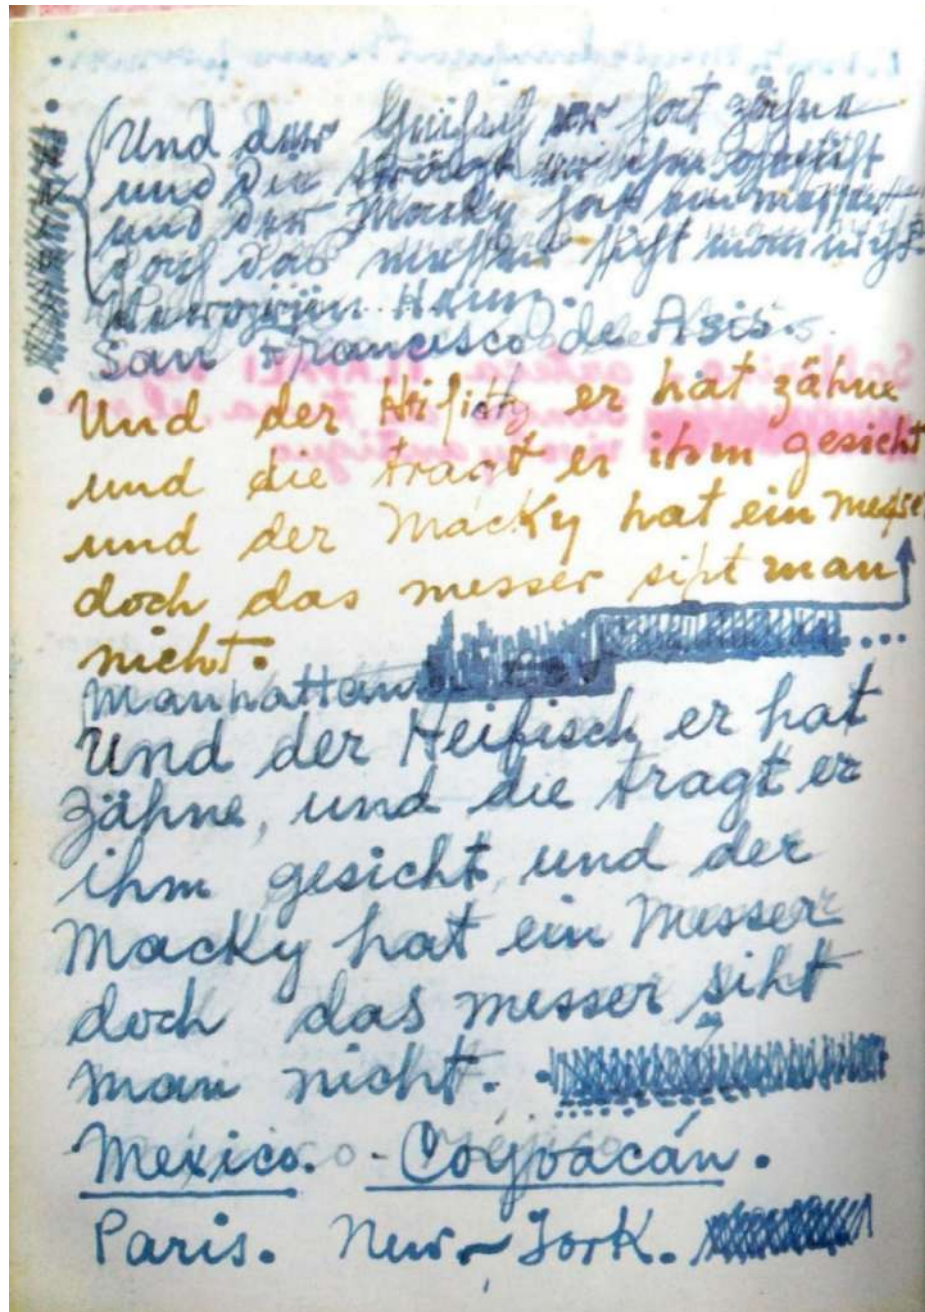 (Und der Haifisch er hat zähne
und die trägt er ihm gesicht
und der Macky hat ein messer
doch das messer siht man nicht.
San Francisco de Asis.
Und der er hat zähne
und die tragt er ihm gesicht
und der Macky hat ein messer
doch das messer siht man
nicht.
Manhattan
Und der Heifisch er hat
Zähne, und die tragt er
ihm gesicht, und der
Macky hat ein Messer
doch das messer siht
man nicht.
Mexico. - Coyoacán.
Paris. New-York.